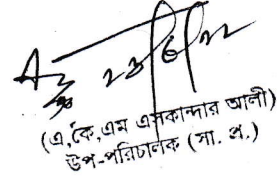 (এ,কে,এম এসকান্দার আলী)
উপ-পরিচালক (সা. প্র.)